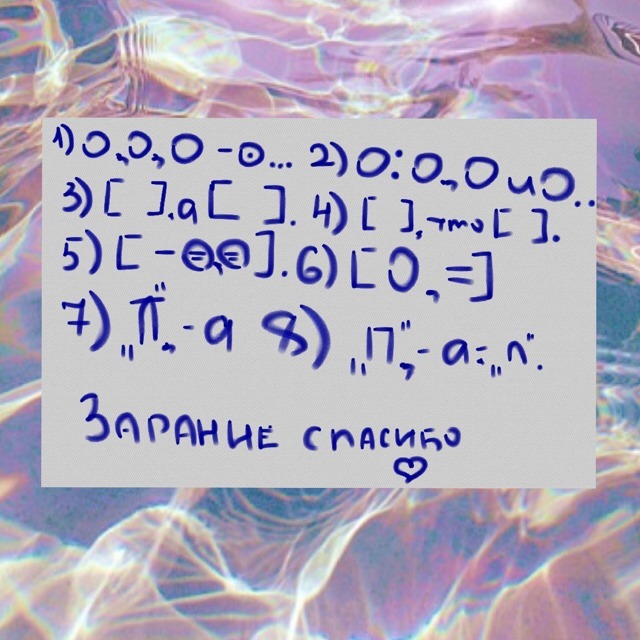 1) О, О, О - ⊙... 2) О: О, О и О..
3) [ ], а [ ]. 4) [ ], что [ ].
5) [ - ⊜, ⊜ ]. 6) [ О, = ]
7) „П", - а 8) „П", - а: „п".
ЗАРАНИЕ СПАСИБО
♡